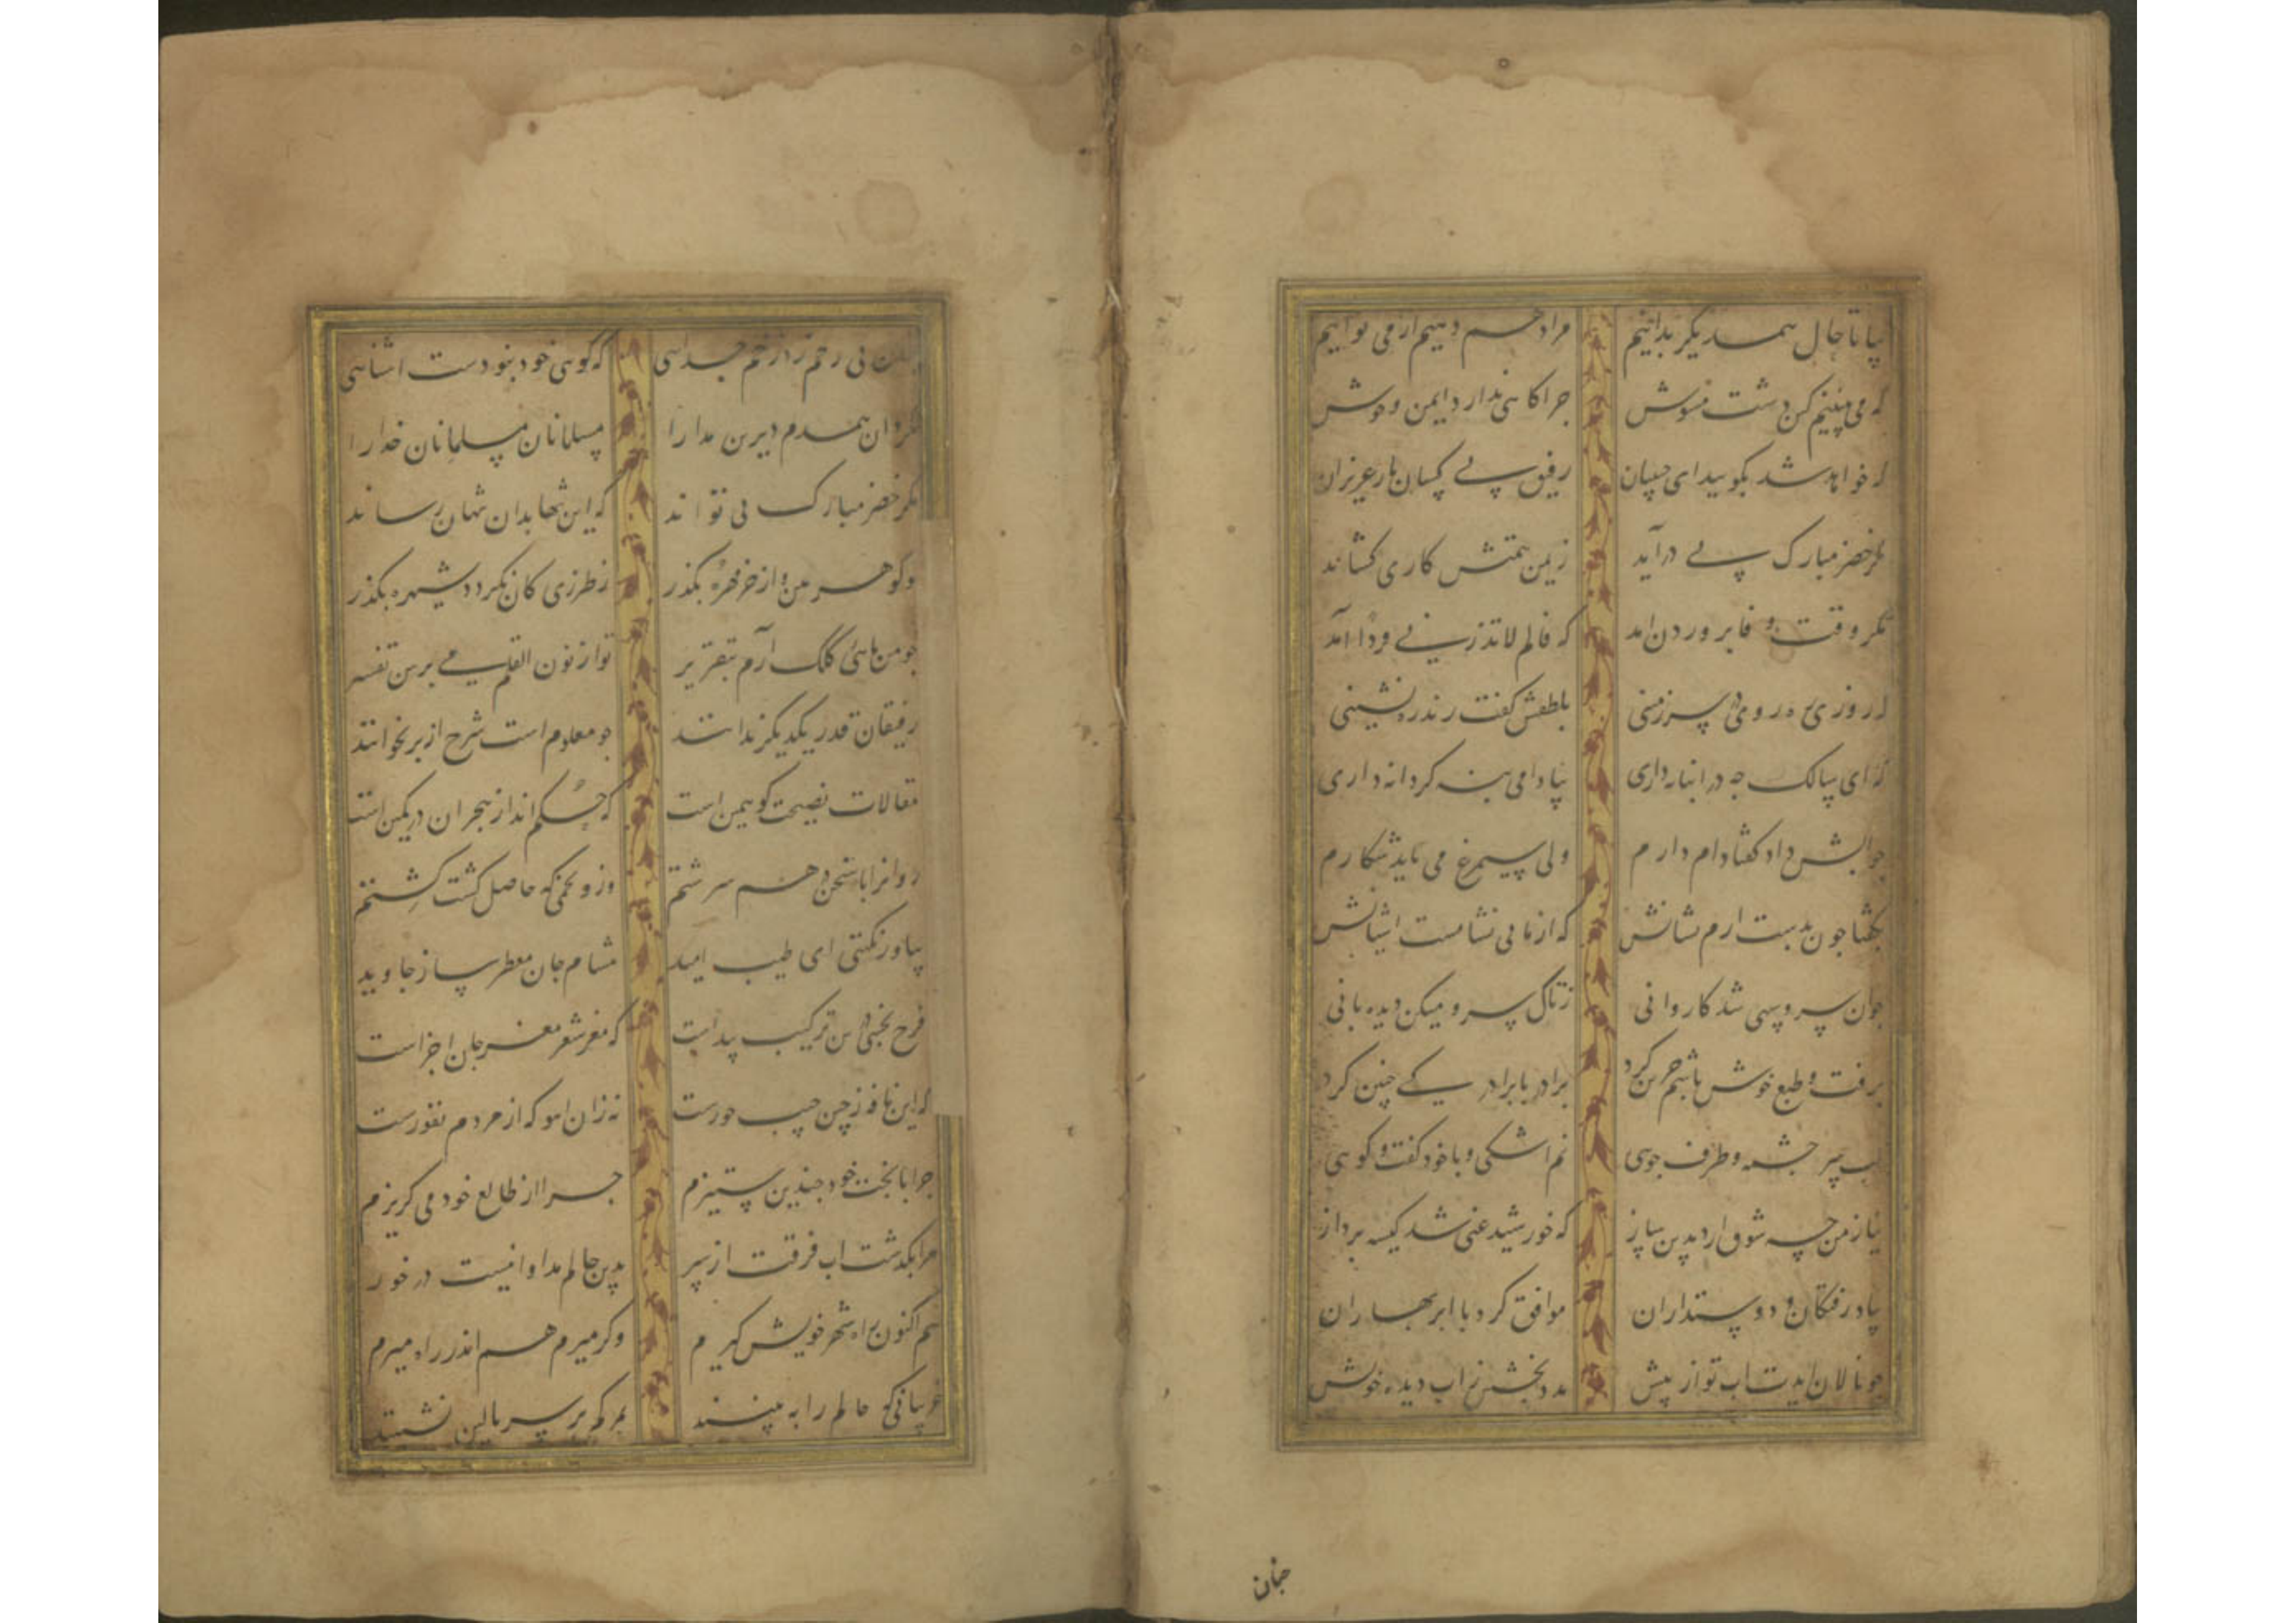 بیا تا حال همدیگر بدانیم مراد هم بجوییم ار می توانیم
که می بینم که این دشت مشوش چراکاهی ندارد ایمن و خوش
که خواهد شد بکویید ای حبیبان رفیق بی کسان یار عزیزان
مکر خضر مبارک پی درآید ز یمن همتش کاری کشاند
مکر وقت وفا پروردن امد که فالم لاتذرنی فردا آمد
که روزی ره روی در سرزمینی بلطفش کفت رند ره نشینی
که ای سالک چه در انبانه داری بیا دامی بنه کر دانه داری
جوابش داد کفتا دام دارم ولی سیمرغ می باید شکارم
بکفتا جون بدست ارم نشانش که از ما بی نشانست اشیانش
جون سرو سهی شد کاروانی ز تاک سرو میکن دیده بانی
برفت و طبع خوش باشم حزین کرد برادر با برادر کی چنین کرد
لب سر جشمه و طرف جوی نم اشکی و با خود کفت و کوی
نیاز من چه شوق ارد بدین ساز که خورشید غنی شد کیسه پرداز
بیاد رفتکان و دوستداران موافق کرد با ابر بهاران
جو نالان ایدت اب توان پیش مدد بخشش ز اب دیده خوش
جنان
بی رحم زد زخم جدایی که کویی خود نبودست اشنایی
نکرد ان همدم دیرین مدارا مسلمانان مسلمانان خدارا
مکر خضر مبارک پی تواند که این تنها بدان تنها رساند
تو کوهر بین و از خر مهره بکذر ز طرزی کان نکردد شهره بکذر
جو من ماهی کلک آرم بتقریر تو از نون القلم می پرس تفسیر
رفیقان قدر یکدیکر ندانند جو معلوم است شرح از بر نخوانند
مقالات نصیحت کو همین است که حکم انداز هجران در کمین است
روانرا با سخن در هم سرشتم وز و تخمی که حاصل کشت کشتم
بیاور نکهتی ای طیب امید مشام جان معطر ساز جاوید
فرح بخشی درین ترکیب پیداست که مغز شعر مغز جان اجزاست
که این نافه ز چین جیب حورست نه زان اهو که از مردم نفورست
جرا با بخت خود جندین ستیزم جرا از طالع خود می کریزم
مرا بکذشت اب فرقت از سر بدین حالم مدارا نیست در خور
هم اکنون راه شهر خویش کیرم وکر میرم هم اندر راه میرم
غریبانی که حالم را ببینند بر سر بالین نشینند